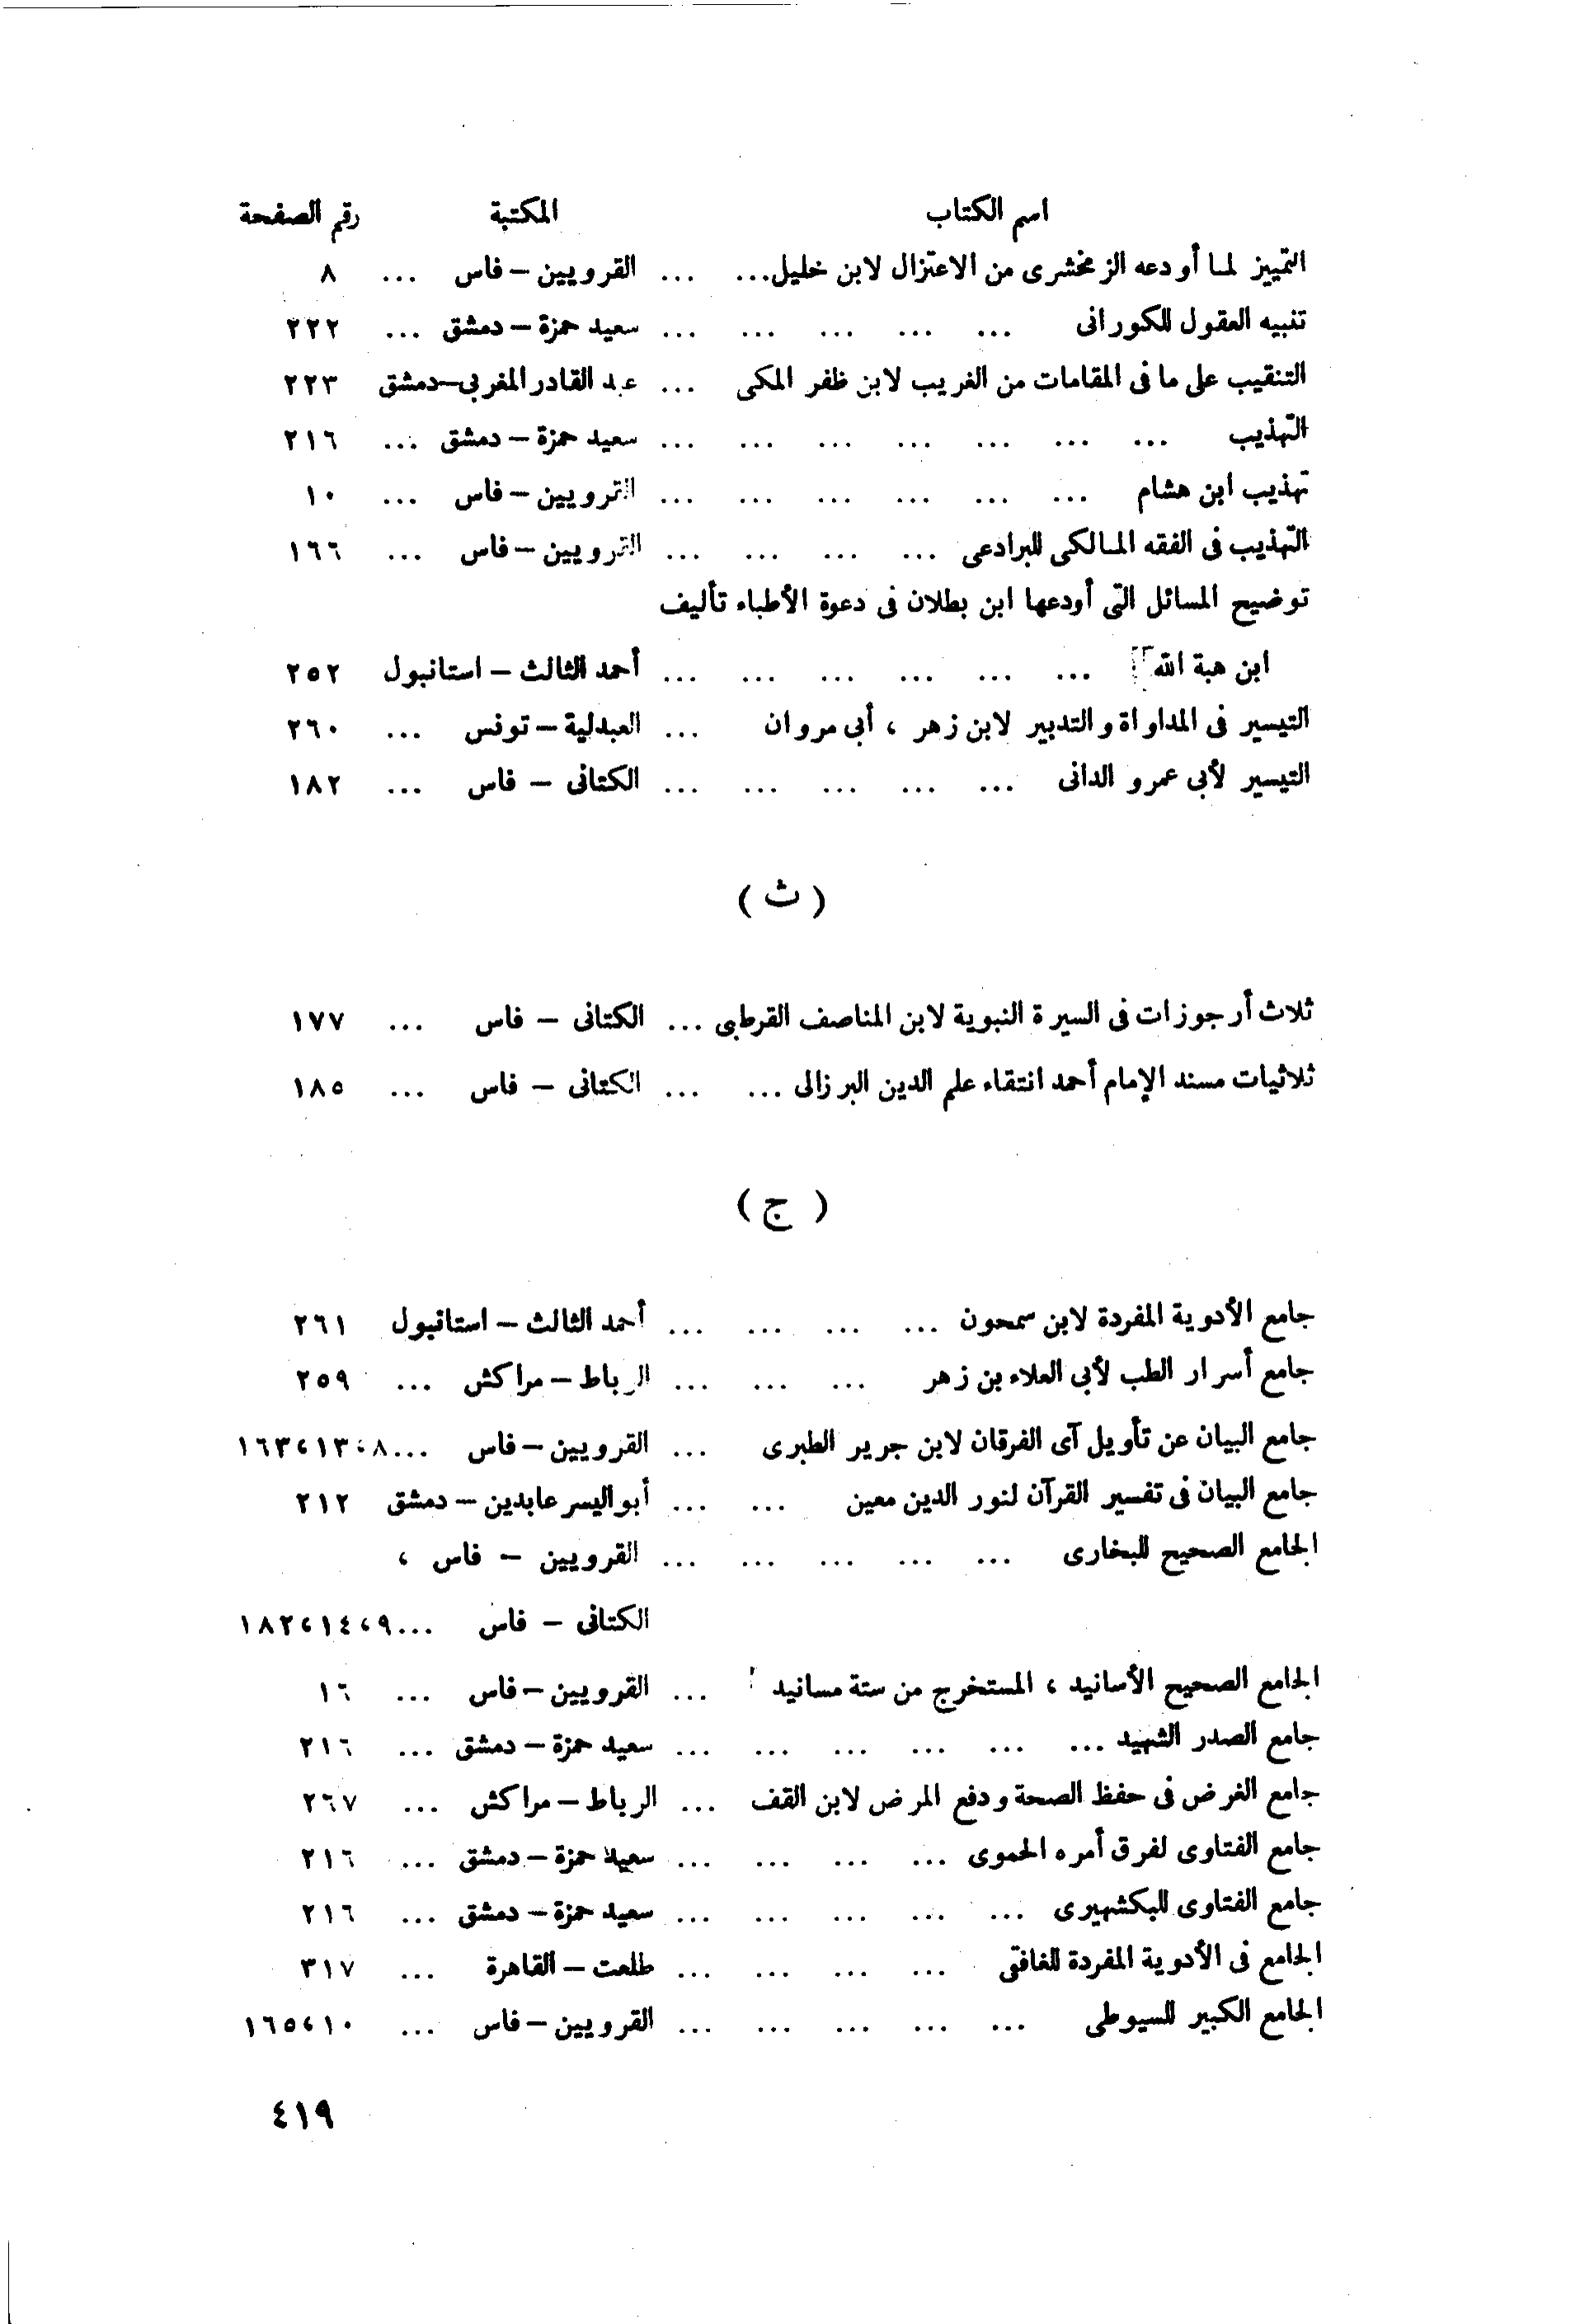 اسم الكتاب المكتبة رقم الصفحة
التمييز لما أودعه الزمخشرى من الاعتزال لابن خليل... ... القرويين – فاس ... ٨
تنبيه العقول للكورانى ... ... ... ... ... سعيد حمزة – دمشق ... ٢٢٢
التنقيب على ما فى المقامات من الغريب لابن ظفر المكى ... عبد القادر المغربى–دمشق ٢٢٣
التهذيب ... ... ... ... ... ... ... سعيد حمزة – دمشق ... ٢١٦
تهذيب ابن هشام ... ... ... ... ... ... القرويين – فاس ... ١٠
التهذيب فى الفقه المالكى للبرادعى ... ... ... ... القرويين – فاس ... ١٦٦
توضيح المسائل التى أودعها ابن بطلان فى دعوة الأطباء تأليف
ابن هبة الله ... ... ... ... ... ... أحمد الثالث – استانبول ٢٥٢
التيسير فى المداواة والتدبير لابن زهر ، أبى مروان ... العبدلية – تونس ... ٢٦٠
التيسير لأبى عمرو الدانى ... ... ... ... ... الكتانى – فاس ... ١٨٢
( ث )
ثلاث أرجوزات فى السيرة النبوية لابن المناصف القرطبى ... الكتانى – فاس ... ١٧٧
ثلاثيات مسند الإمام أحمد انتقاء علم الدين البرزالى ... ... الكتانى – فاس ... ١٨٥
( ج )
جامع الأدوية المفردة لابن سمحون ... ... ... ... أحمد الثالث – استانبول ٢٦١
جامع أسرار الطب لأبى العلاء بن زهر ... ... ... الرباط – مراكش ... ٢٥٩
جامع البيان عن تأويل آى الفرقان لابن جرير الطبرى ... القرويين – فاس ...٨،١٣،١٦٣
جامع البيان فى تفسير القرآن لنور الدين معين ... ... أبو اليسر عابدين – دمشق ٢١٢
الجامع الصحيح للبخارى ... ... ... ... ... القرويين – فاس ،
الكتانى – فاس ...٩،١٤،١٨٢
الجامع الصحيح الأسانيد ، المستخرج من ستة مسانيد ... القرويين – فاس ... ١٦
جامع الصدر الشهيد ... ... ... ... ... ... سعيد حمزة – دمشق ... ٢١٦
جامع الغرض فى حفظ الصحة ودفع المرض لابن القف ... الرباط – مراكش ... ٢٦٧
جامع الفتاوى لفرق أمره الحموى ... ... ... ... سعيد حمزة – دمشق ... ٢١٦
جامع الفتاوى للبكشهيرى ... ... ... ... ... سعيد حمزة – دمشق ... ٢١٦
الجامع فى الأدوية المفردة للغافقى ... ... ... ... طلعت – القاهرة ... ٣١٧
الجامع الكبير للسيوطى ... ... ... ... ... القرويين – فاس ... ١٠،١٦٥
٤١٩